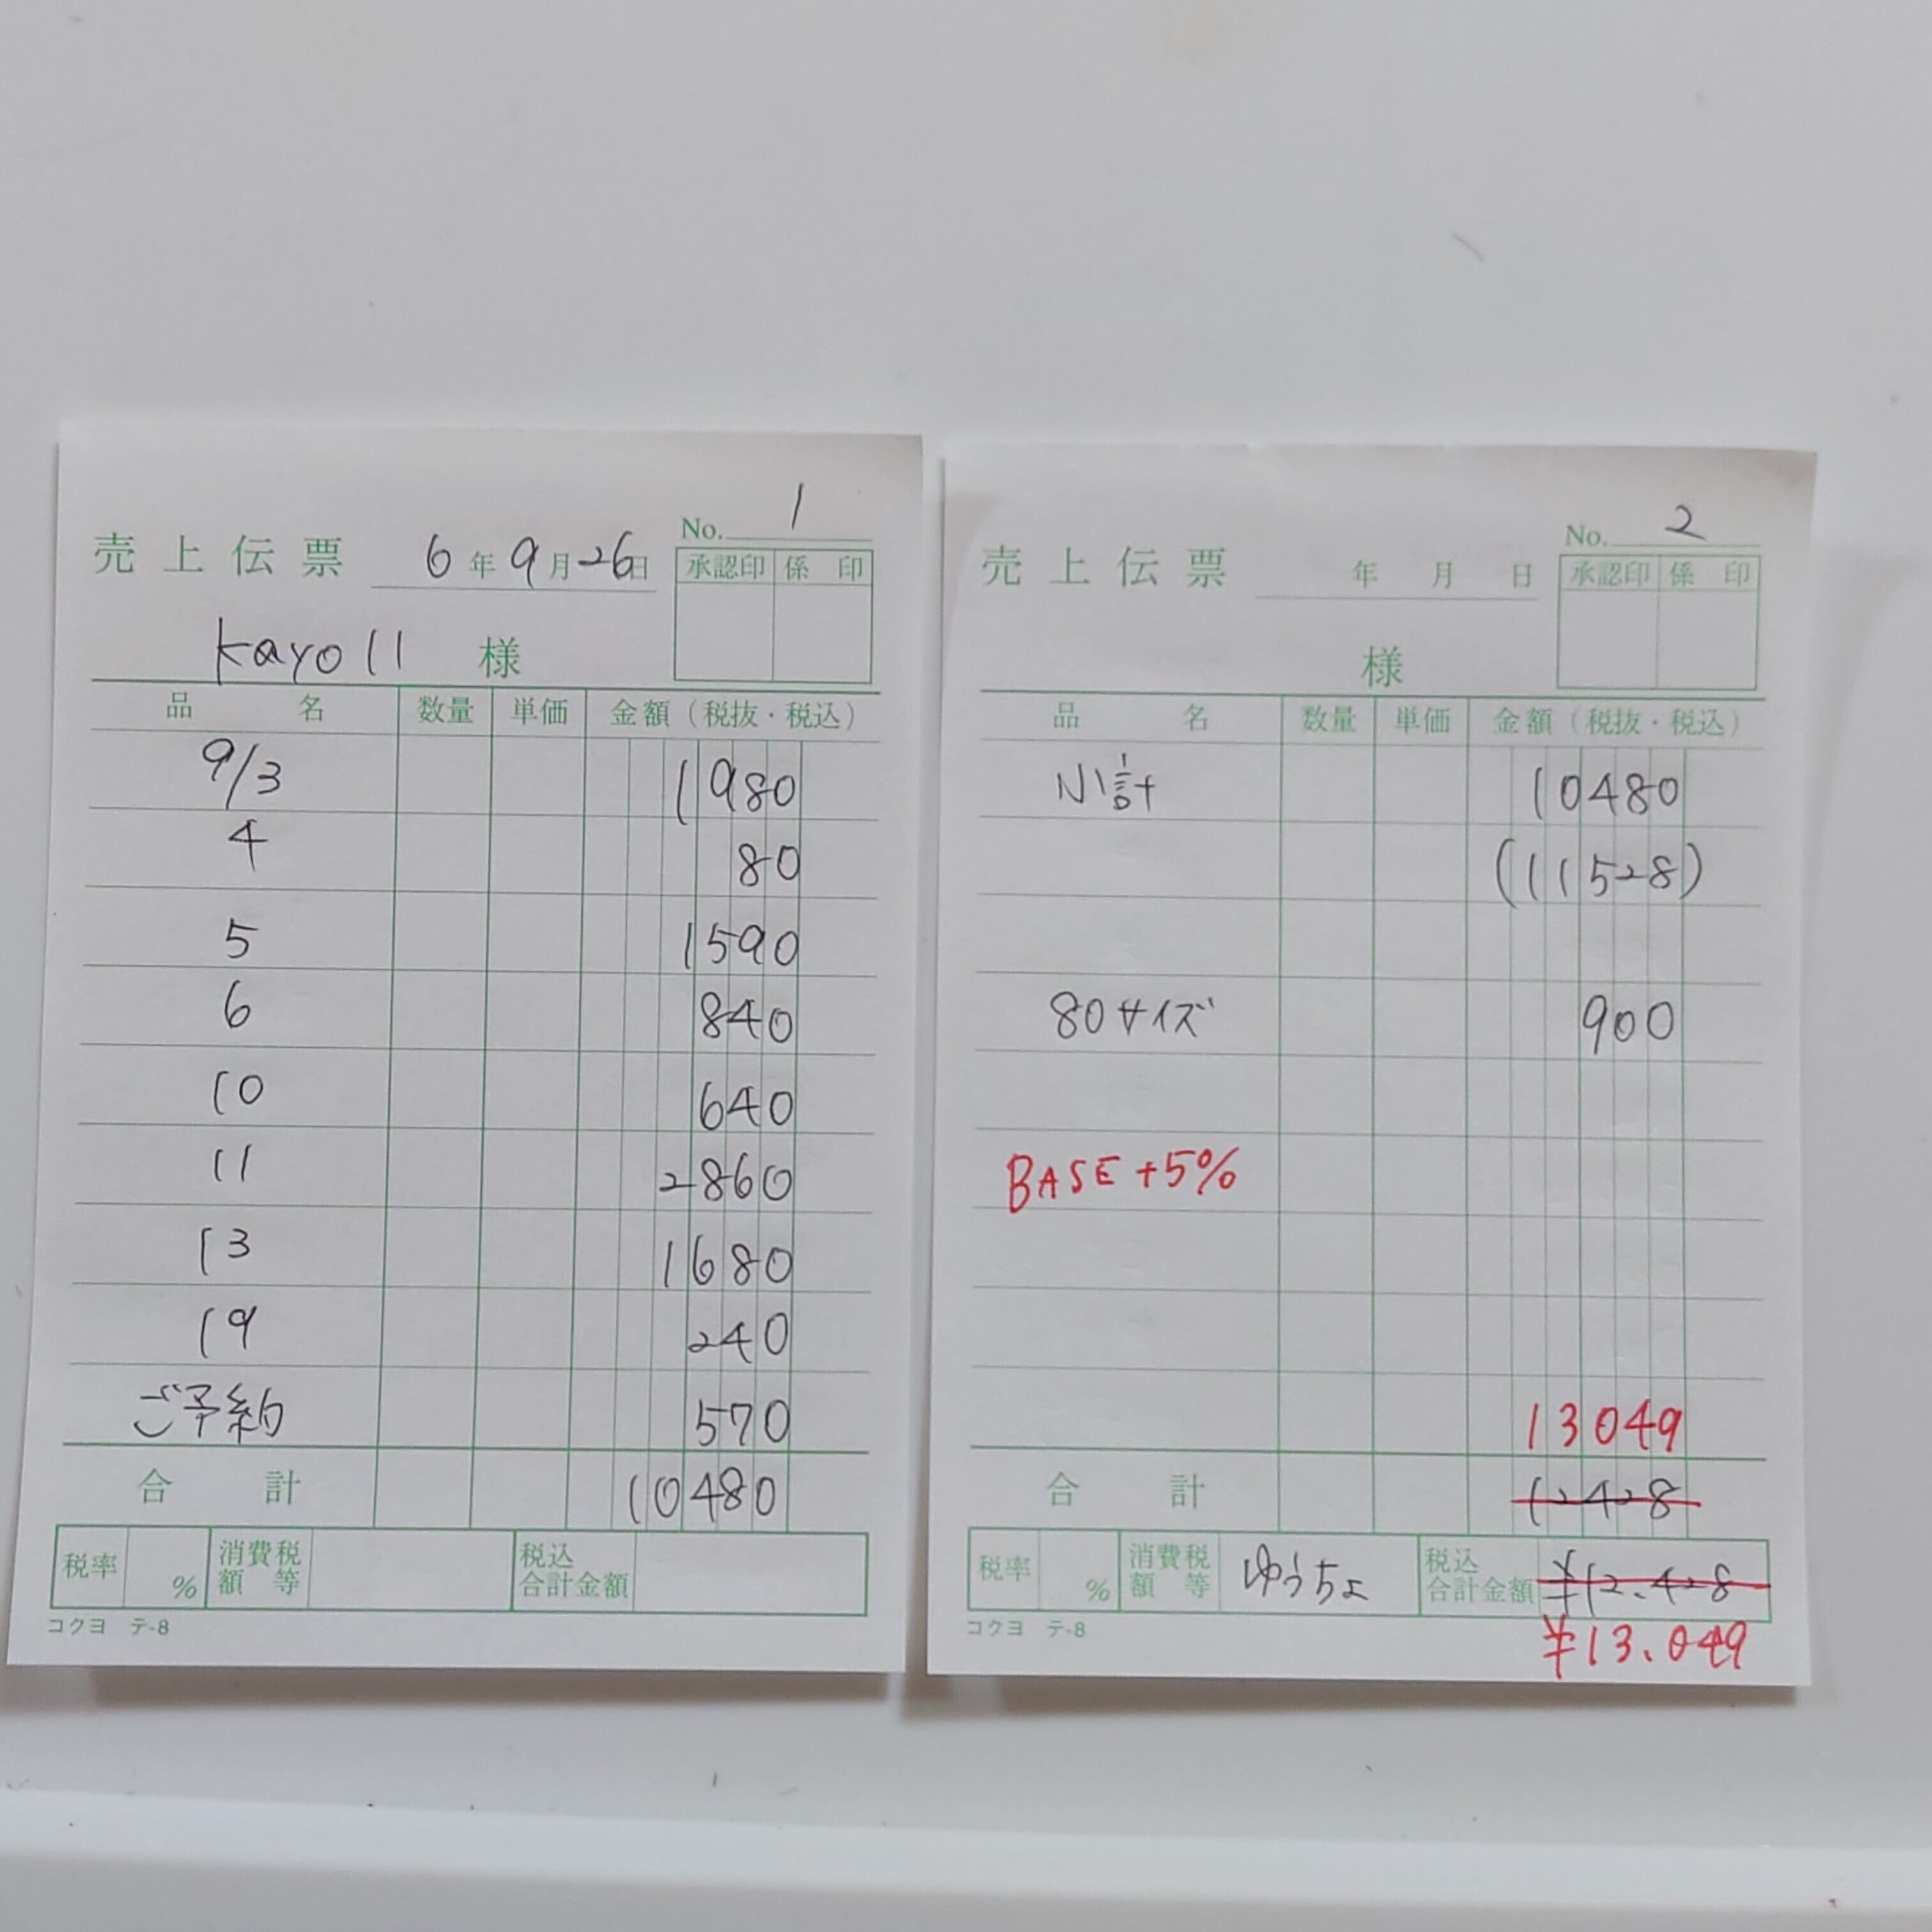 売上伝票 6年9月26日 No. 1
承認印 係印
kayo11 様
品名 数量 単価 金額（税抜・税込）
9/3 1980
4 80
5 1590
6 840
10 640
11 2860
13 1680
19 240
ご予約 570
合計 10480
税率 % 消費税額等 税込合計金額
コクヨ テ-8
売上伝票 年 月 日 No. 2
承認印 係印
様
品名 数量 単価 金額（税抜・税込）
小計 10480
(11528)
80サイズ 900
BASE +5%
13049
合計 12428
税率 % 消費税額等 ゆうちょ 税込合計金額 ¥12.428
コクヨ テ-8
¥13.049